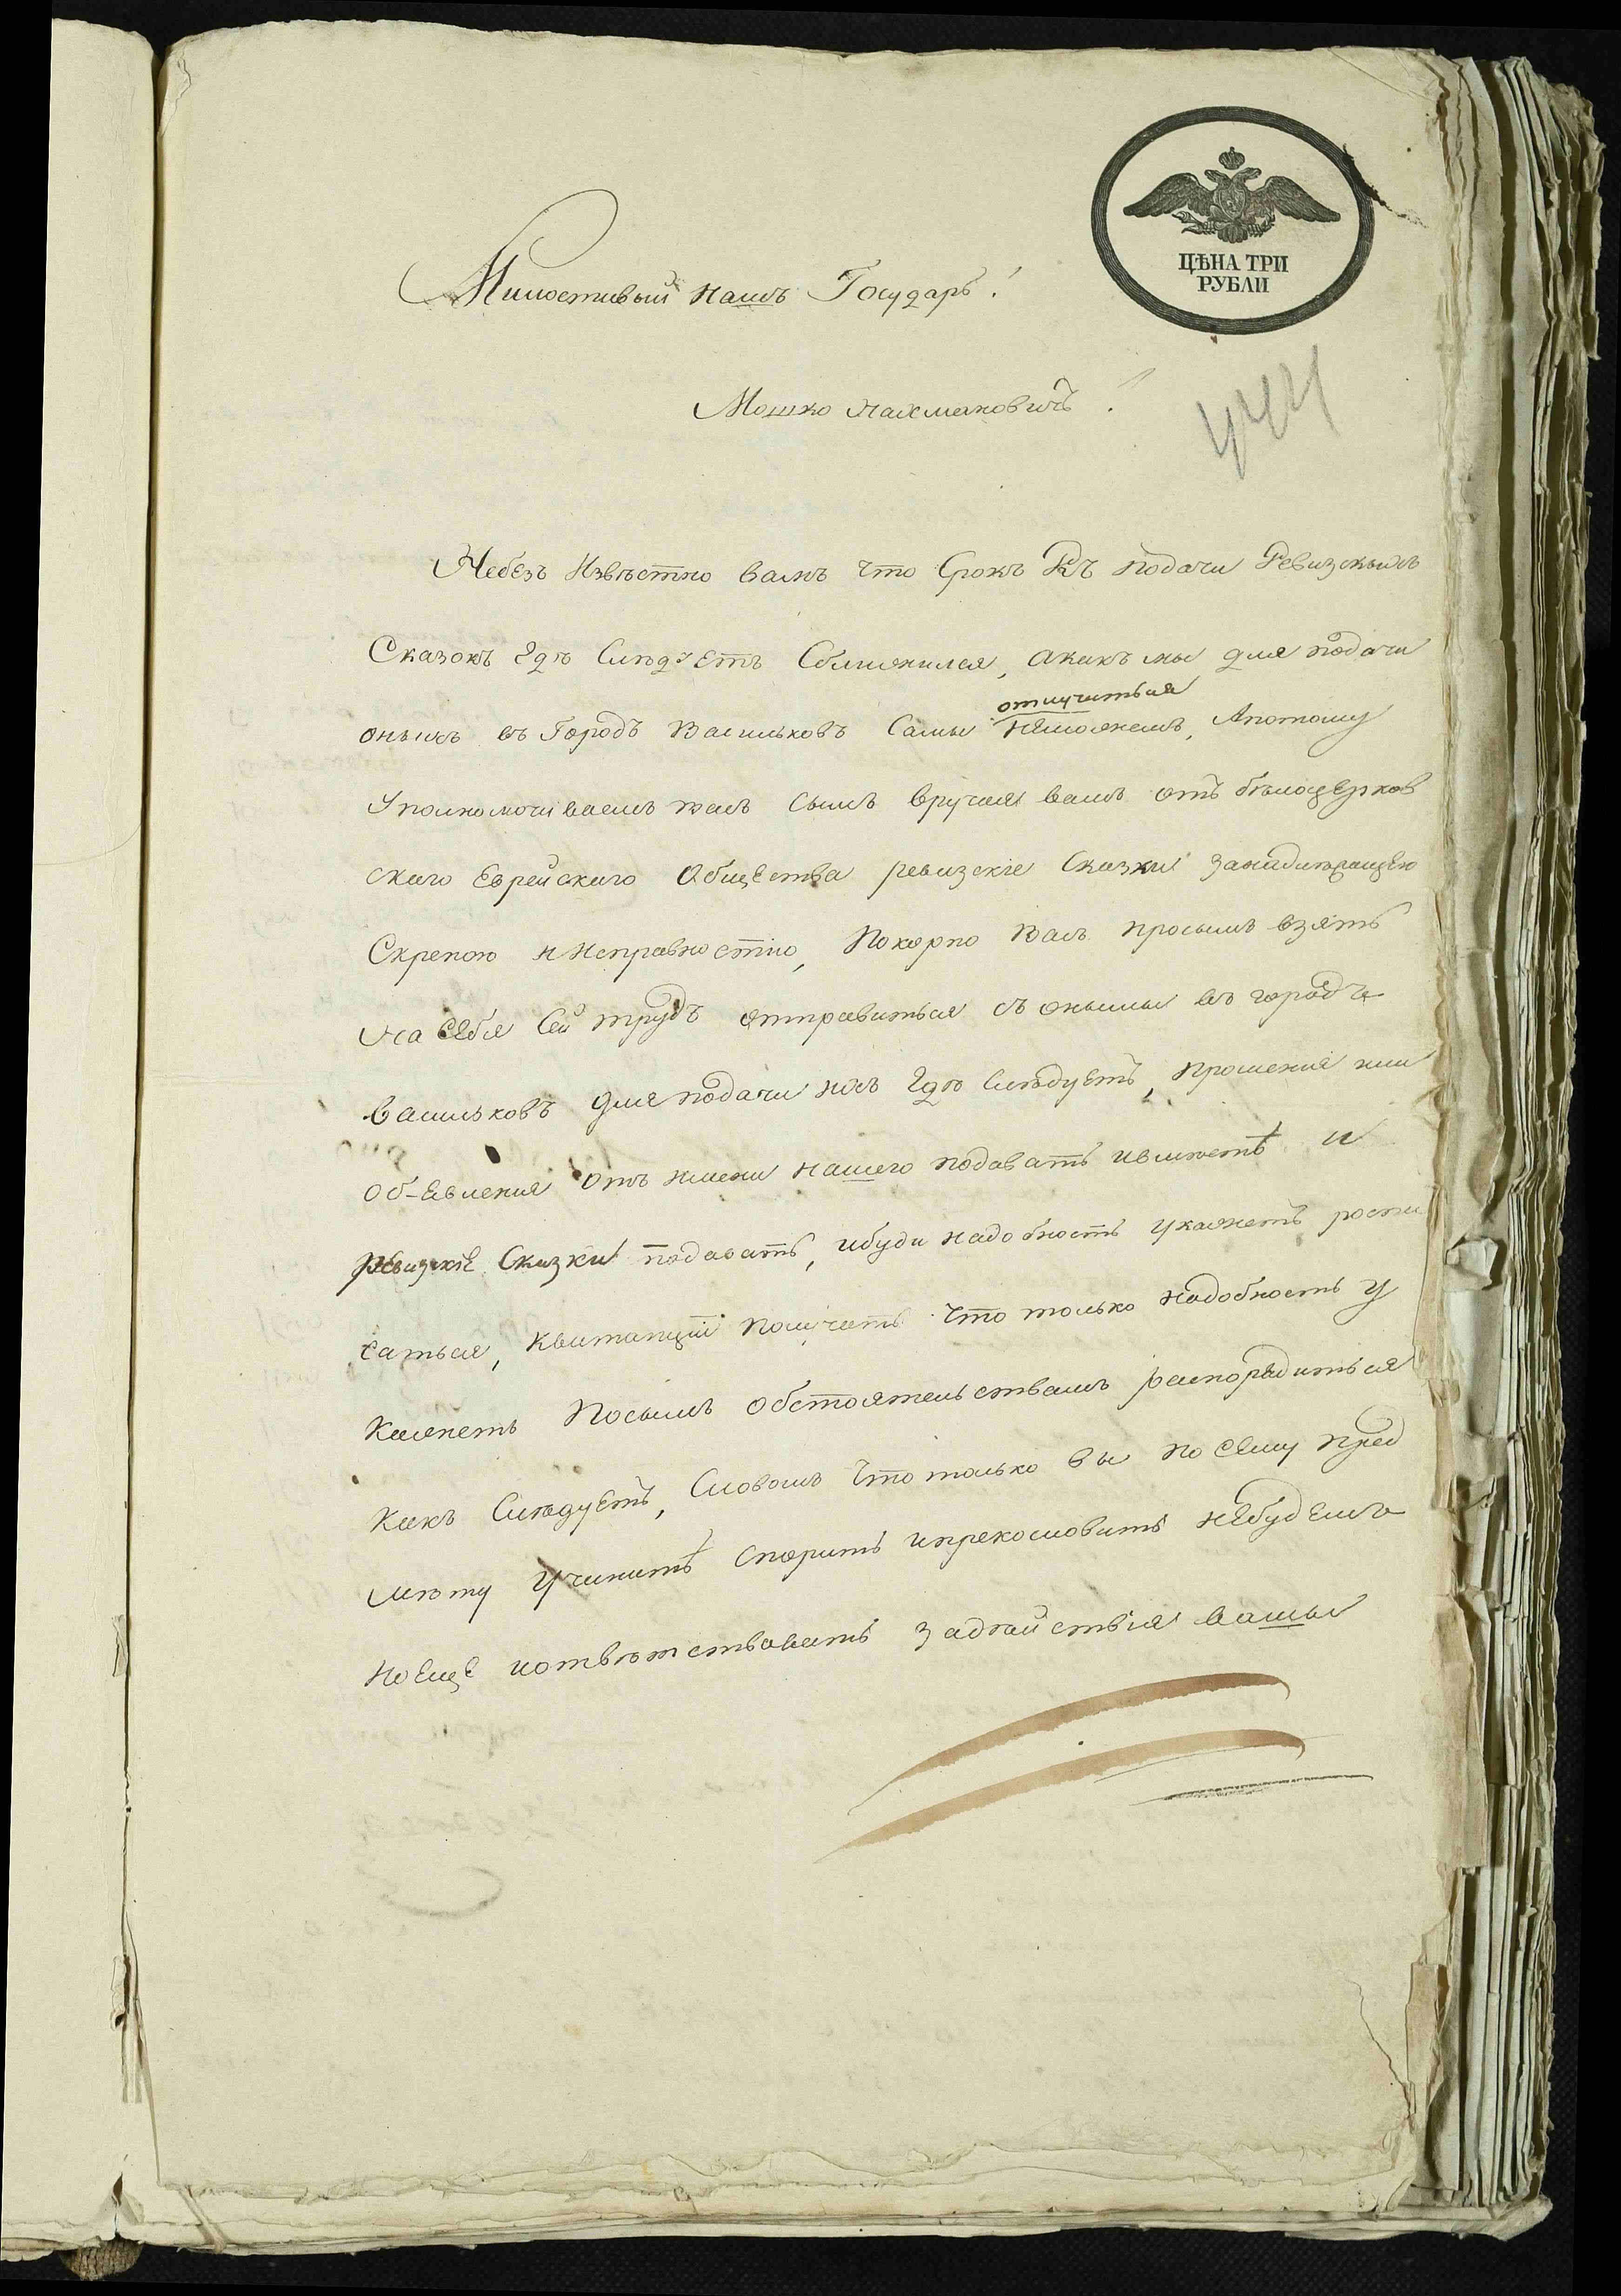 ЦѢНА ТРИ
РУБЛИ
Милостивый нашъ Государь!
Мошко Нахмановичъ!
Небезъ Извѣстно вамъ что Срокъ Къ подачи Ревизскихъ
Сказокъ гдѣ Слѣдуетъ Сближился, акакъ мы для подачи
отлучиться
оныхъ въ Городъ Васильковъ Самы неможемъ, Апотому
Уполномочиваемъ васъ сымъ вручая вамъ отъ бѣлоцерков
скаго Еврейскаго Общества ревизскіе Сказки занадлѣжащею
Скрепою и Исправностію, Покорно васъ просымъ взять
на себя Сей трудъ отправиться съ оными въ городъ
Васильковъ для подачи ихъ гдѣ Слѣдуетъ, прошения или
Об-Евления отъ имени нашего подавать и
ревизскіе Сказки подавать, ибуди надобность укажетъ роспи
саться, Квитанціи получать что только надобность у
кажеть Посымъ обстоятельствамъ распорядиться
Какъ Слѣдуетъ, Словомъ Что только вы по сему пред
мѣту Учините Спорить ипрекословить небудемъ
но Еще иотвѣтствовать задѣйствія вашы